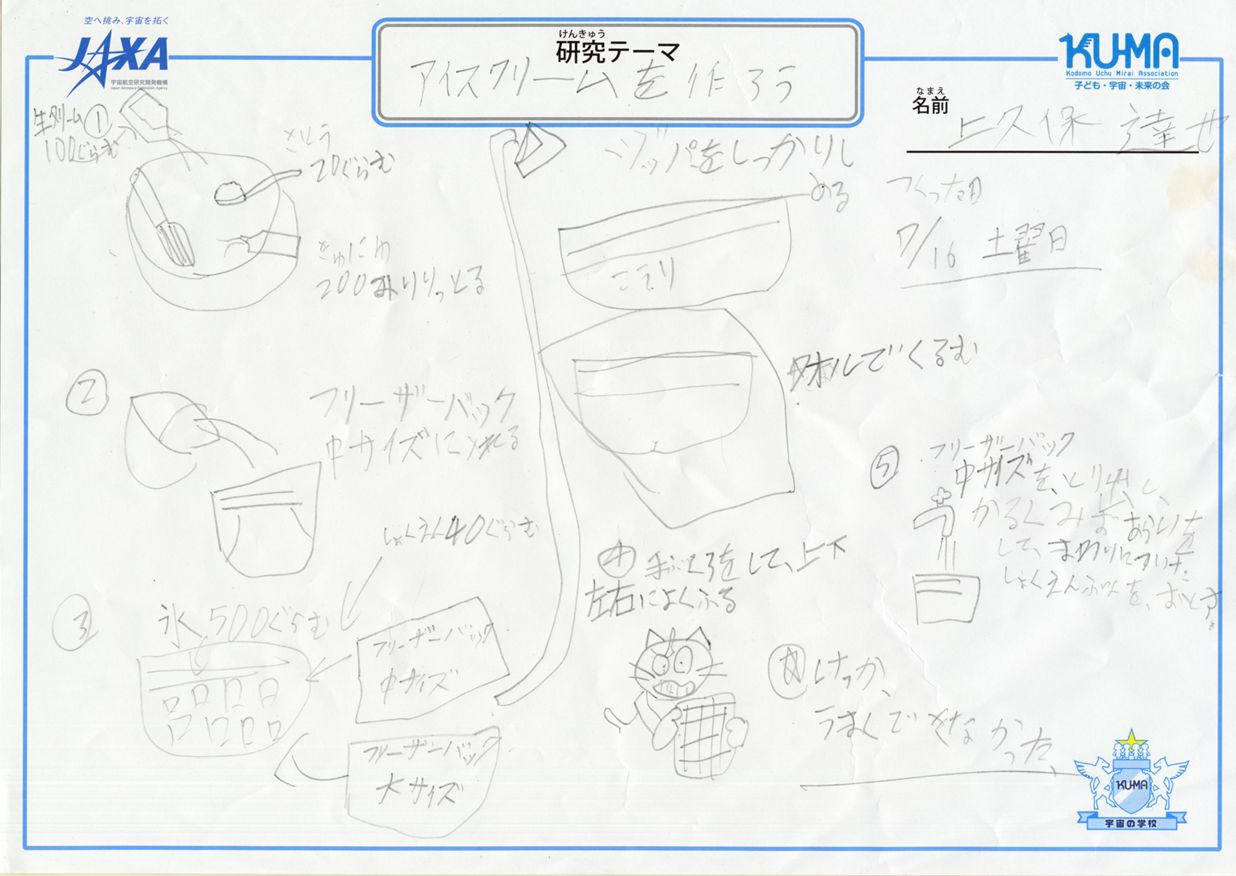 空へ挑み、宇宙を拓く
JAXA
宇宙航空研究開発機構
Japan Aerospace Exploration Agency
けんきゅう
研究テーマ
アイスクリームを作ろう
KU-MA
Kodomo Uchu Mirai Association
子ども・宇宙・未来の会
なまえ
名前
上久保 達也
つくった日
7/16 土曜日
①
生クリーム
100ぐらむ
さとう
20ぐらむ
ぎゅにゅ
200みりりっとる
②
フリーザーバック
中サイズに入れる
③
しょくえん40ぐらむ
氷500ぐらむ
フリーザーバック
中サイズ
フリーザーバック
大サイズ
ジッパをしっかりし
める
こおり
タオルでくるむ
④
手ぶくろをして、上下
左右によくふる
⑤
フリーザーバック
中サイズを、とり出し、
かるくみずあらいを
して、まわりについた
しょくえんぶんを、おとす。
けっか、
うまくできなかった、
KU-MA
宇宙の学校